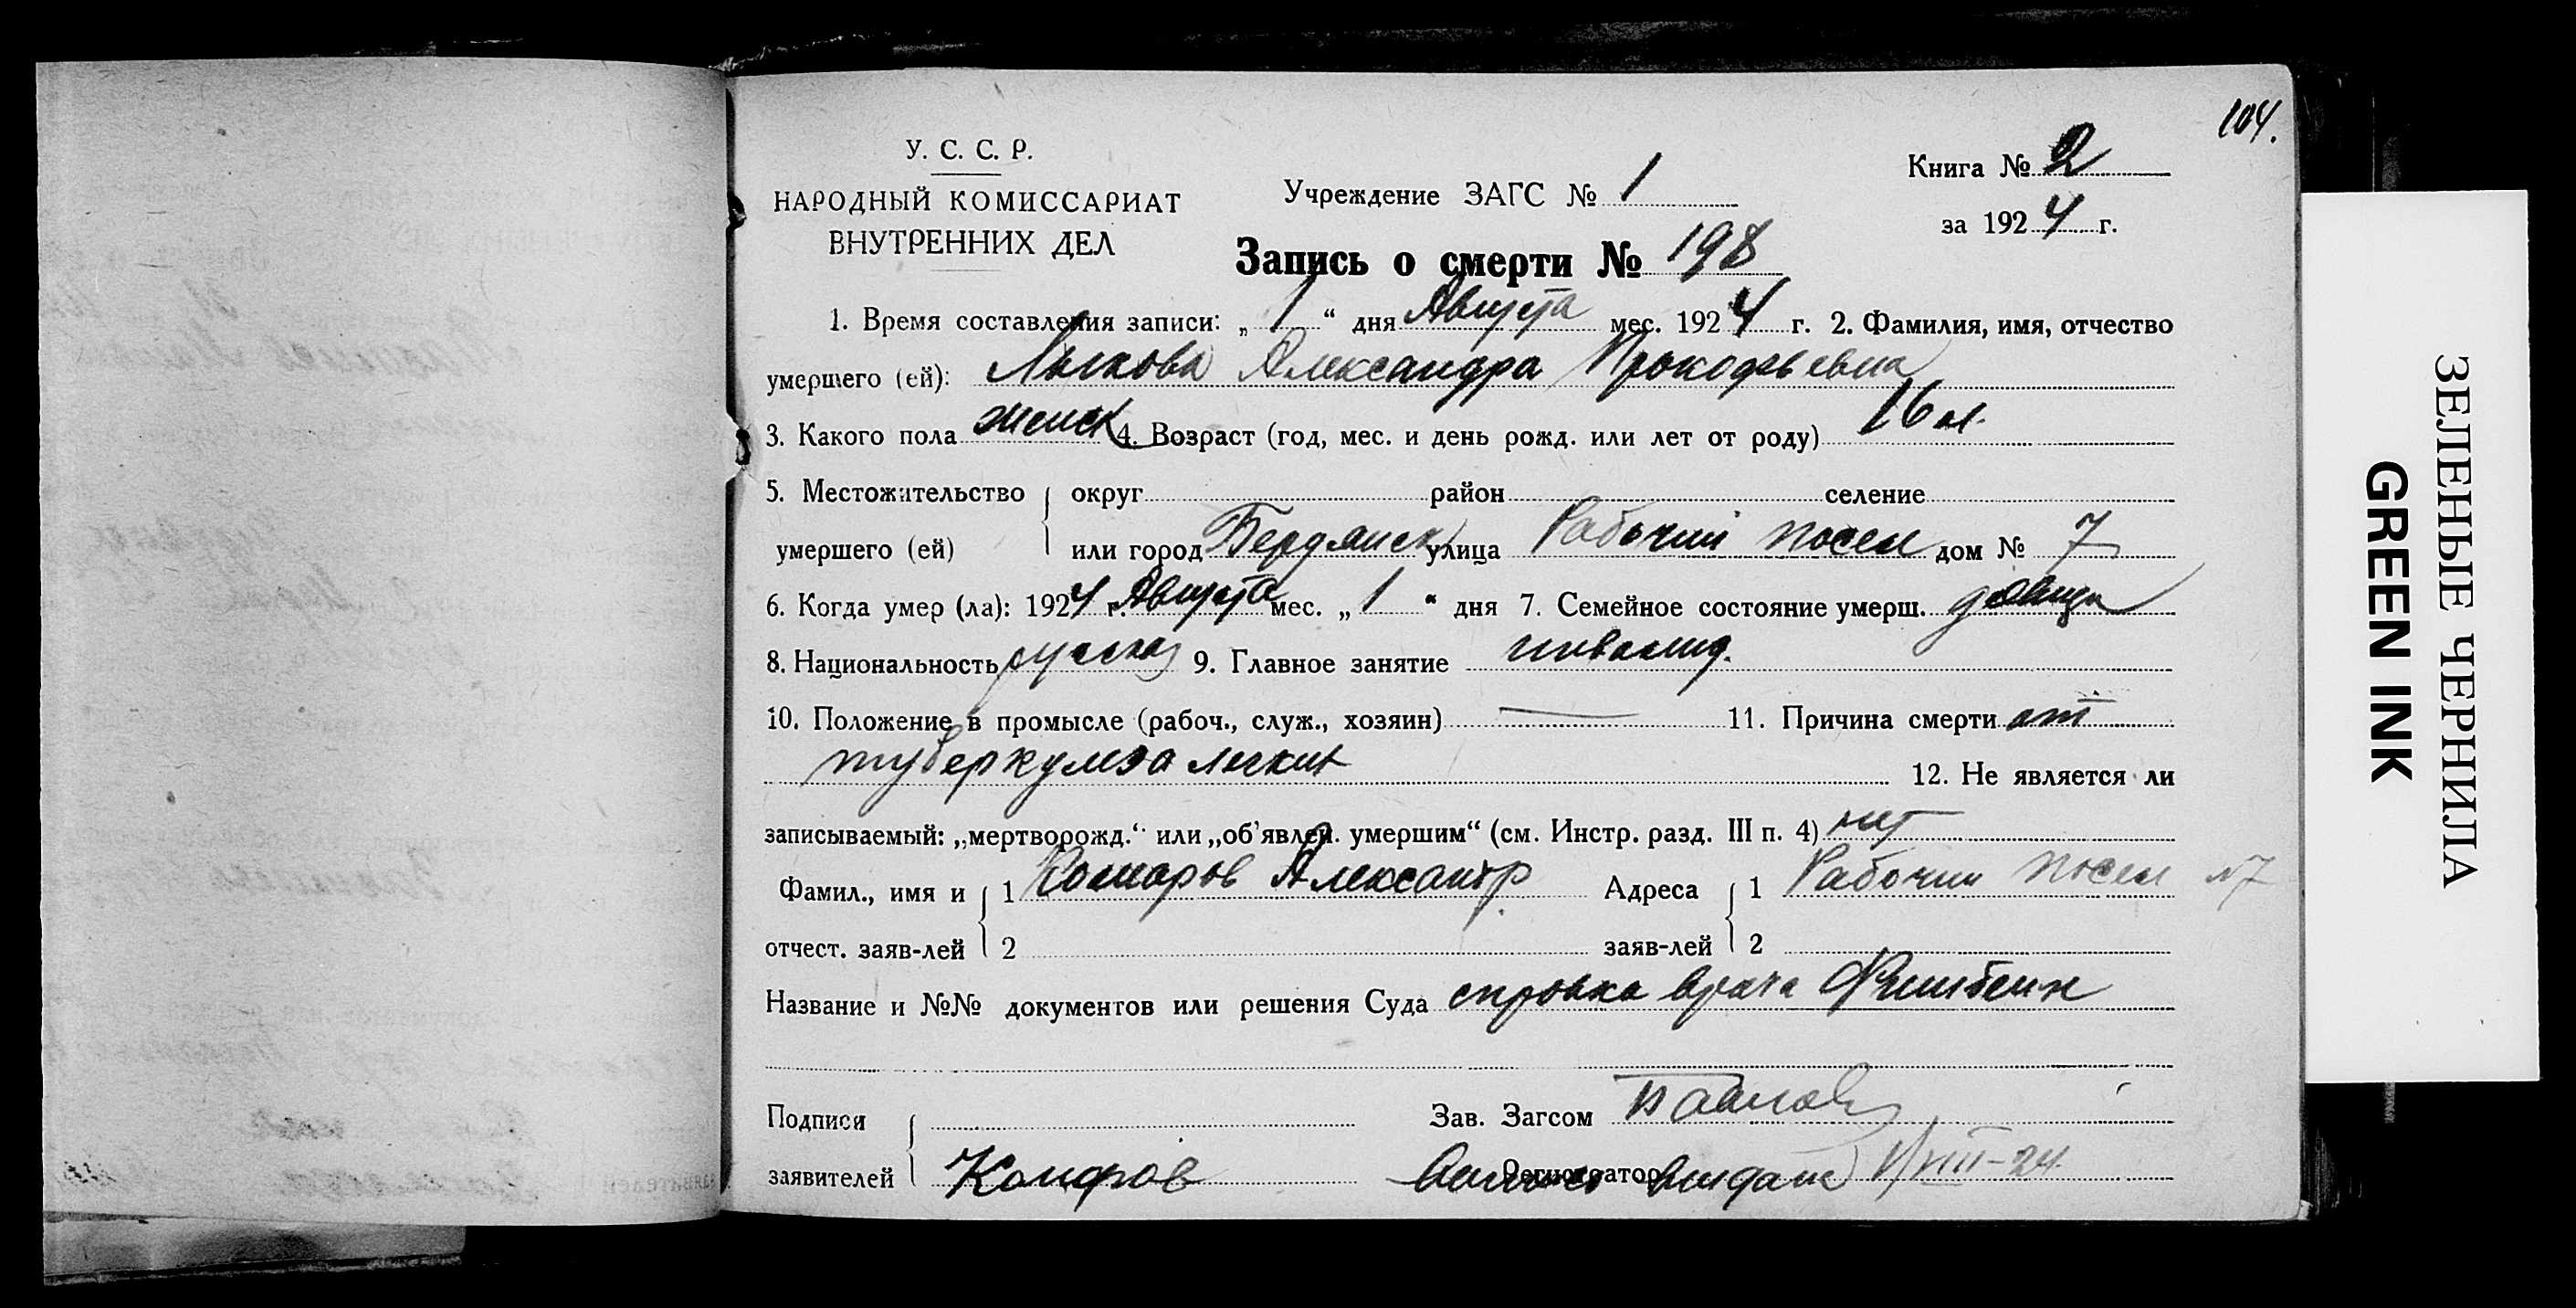 104.
У. С. С. Р.
НАРОДНЫЙ КОМИССАРИАТ
ВНУТРЕННИХ ДЕЛ
Учреждение ЗАГС № 1
Книга № 2
за 1924 г.
Запись о смерти № 198
1. Время составления записи: „ 1 “ дня Августа мес. 1924 г. 2. Фамилия, имя, отчество
умершего (ей): Лыкова Александра Прокофьевна
3. Какого пола женск 4. Возраст (год, мес. и день рожд. или лет от роду) 16 л.
5. Местожительство округ район селение
умершего (ей) или город Бердянск улица Рабочий посел дом № 7
6. Когда умер (ла): 1924 г. Августа мес. „ 1 “ дня 7. Семейное состояние умерш. девица
8. Национальность русская 9. Главное занятие инвалид.
10. Положение в промысле (рабоч., служ., хозяин) — 11. Причина смерти от
туберкулеза легких 12. Не является ли
записываемый: „мертворожд.“ или „об’явлен. умершим“ (см. Инстр. разд. III п. 4) нет
Фамил., имя и 1 Александр Адреса 1 Рабочий посел №7
отчест. заяв-лей 2 заяв-лей 2
Название и №№ документов или решения Суда справка врача
Подписи Зав. Загсом Павлов
заявителей Регистратор выдана 1/VIII-24.
ЗЕЛЕНЫЕ ЧЕРНИЛА
GREEN INK